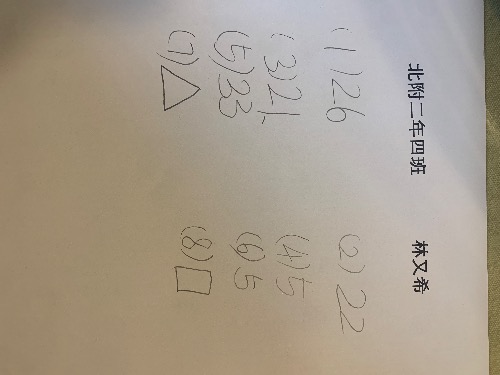 北附二年四班 林又希
(1)26 (2)22
(3)21 (4)5
(5)33 (6)5
(7)△ (8)□